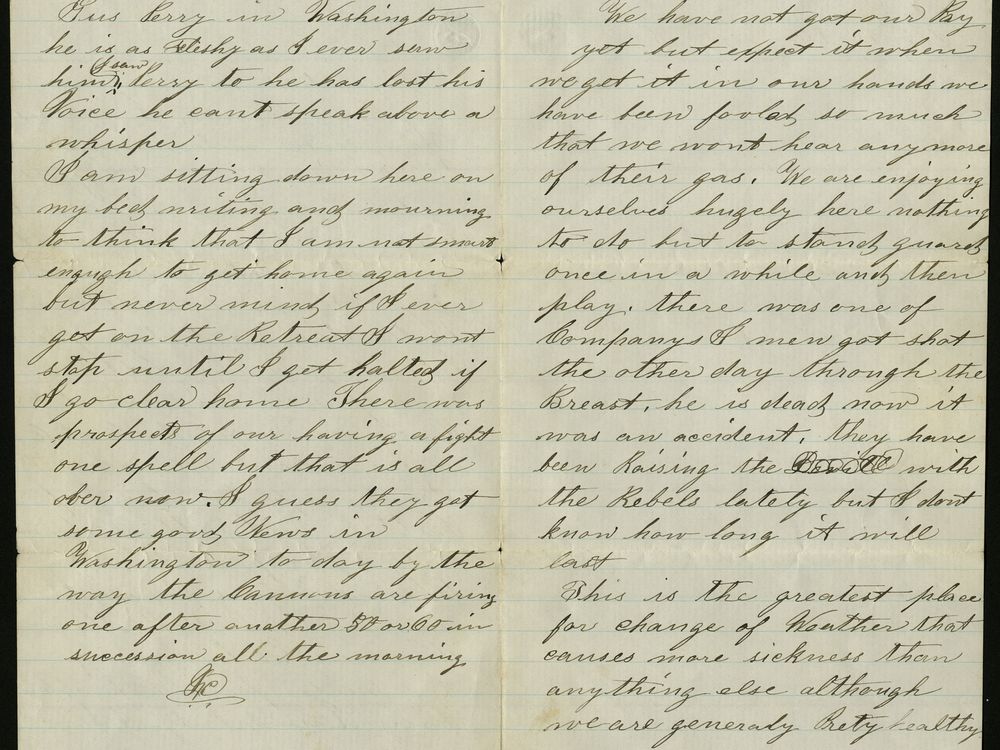 Gus Perry in Washington
he is as Fleshy as I ever saw
him, I saw Perry to he has lost his
Voice he cant speak above a
whisper
I am sitting down here on
my bed writing and mourning
to think that I am not smart
enough to get home again
but never mind if I ever
get on the Retreat I wont
stop until I get halted if
I go clear home There was
prospects of our having a fight
one spell but that is all
over now. I guess they got
some good News in
Washington to day by the
way the Cannons are firing
one after another 50 or 60 in
succession all the morning
We have not got our Pay
yet but expect it when
we get it in our hands we
have been fooled so much
that we wont hear any more
of their gas. We are enjoying
ourselves hugely here nothing
to do but to stand guard
once in a while and then
play. there was one of
Companys I men got shot
the other day through the
Breast, he is dead now it
was an accident. they have
been Raising the with
the Rebels lately but I dont
know how long it will
last
This is the greatest place
for change of Weather that
causes more sickness than
anything else although
we are generaly Prety healthy